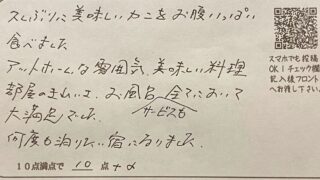 久しぶりに美味しいカニをお腹いっぱい
食べました
アットホームな雰囲気、美味しい料理
部屋のきれいさ、お風呂 全てにおいて
サービスも
大満足でした。
何度も泊りたい宿になりました。
10点満点で 10 点 +α
スマホでも投稿
OK!チェック欄
記入後フロント
へお渡し下さい。